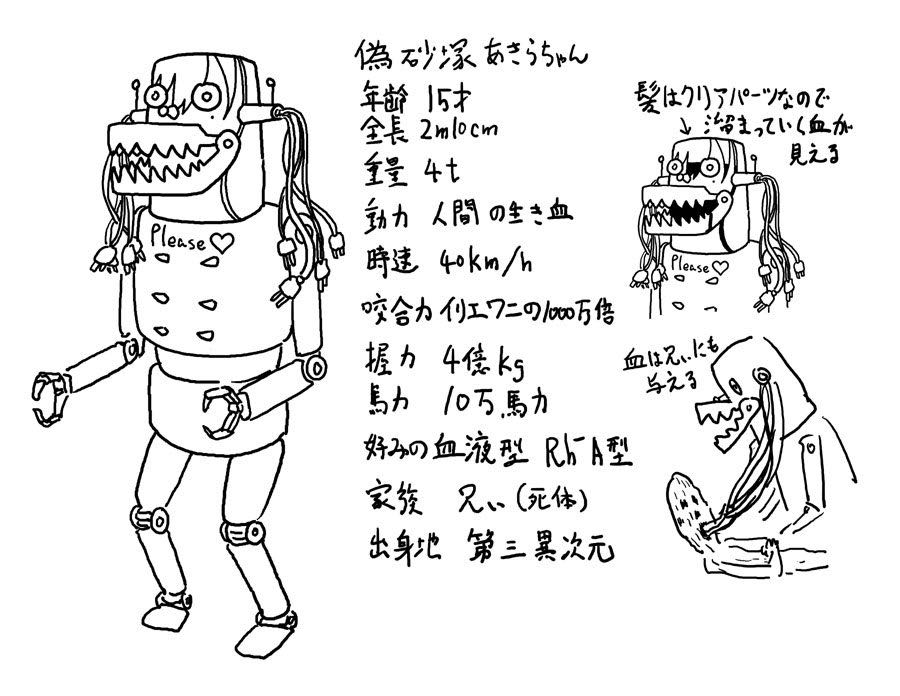 偽 砂塚 あきらちゃん
年齢 15才
全長 2m10cm
重量 4t
動力 人間の生き血
時速 40km/h
咬合力 イリエワニの1000万倍
握力 4億kg
馬力 10万馬力
好みの血液型 Rh⁻A型
家族 兄ぃ(死体)
出身地 第三異次元
Please♡
髪はクリアパーツなので
溜まっていく血が
見える
Please♡
血は兄ぃにも
与える